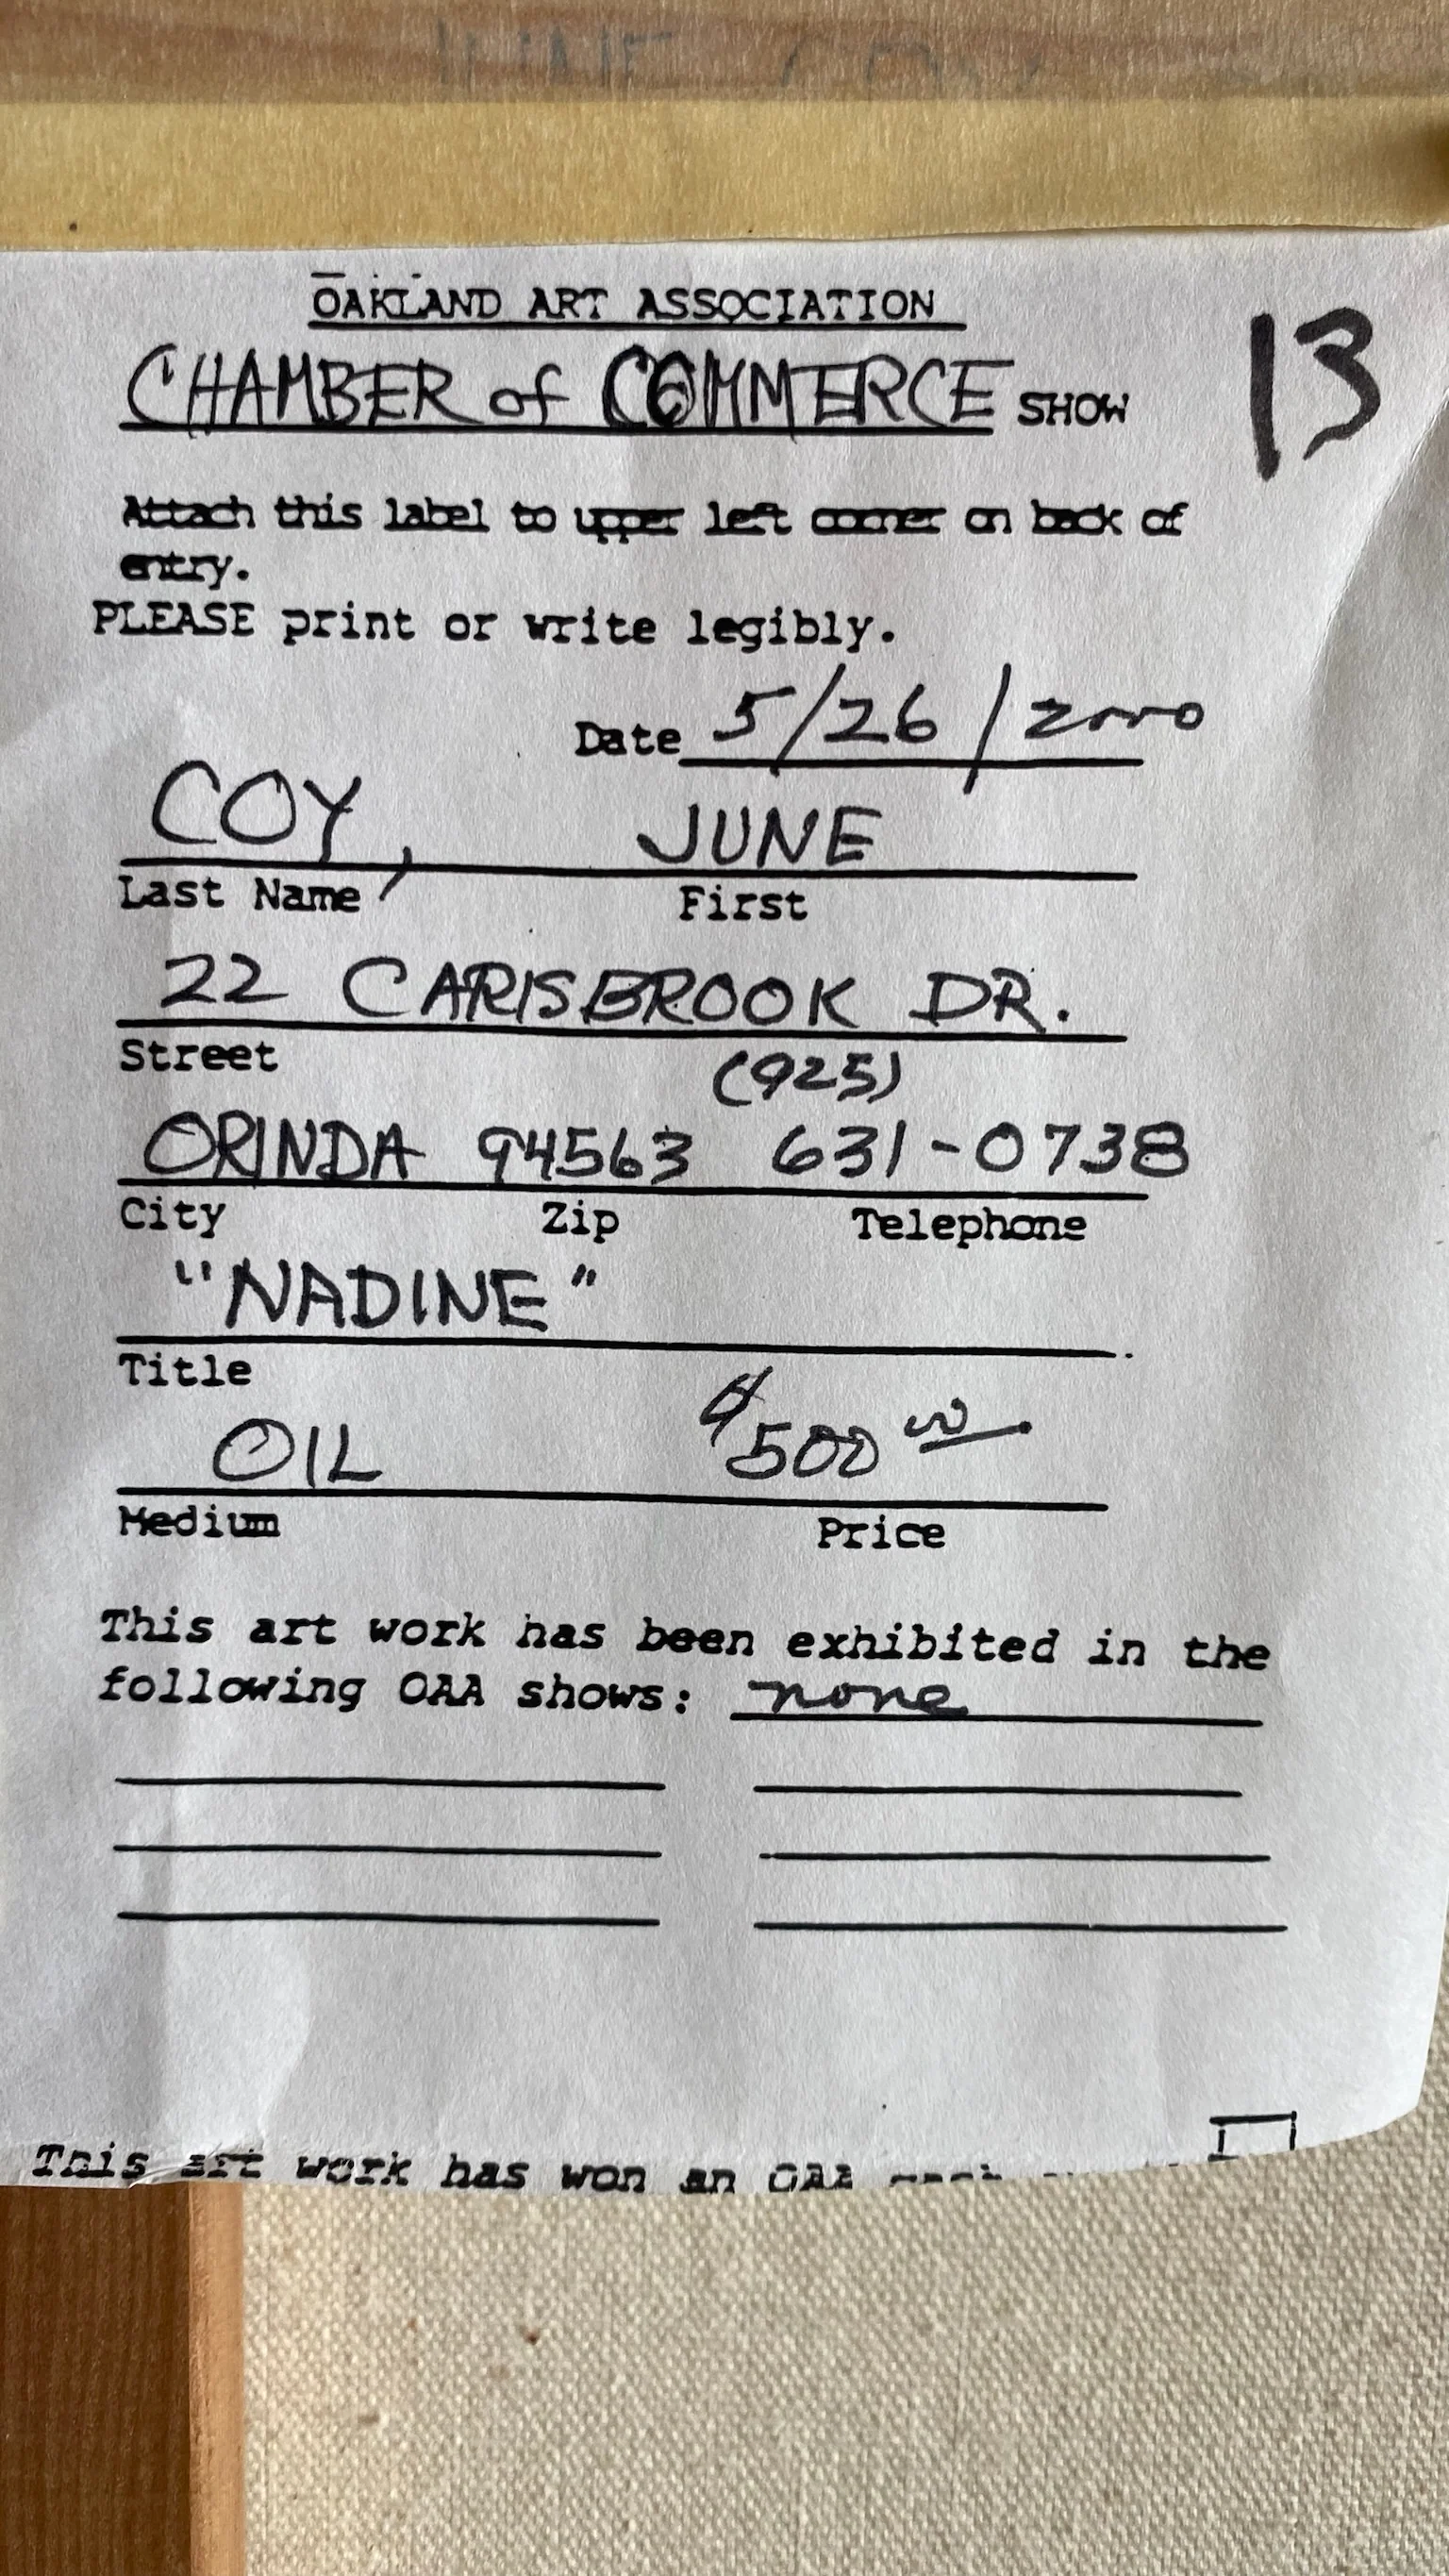 OAKLAND ART ASSOCIATION
CHAMBER of COMMERCE SHOW
13
Attach this label to upper left corner on back of
entry.
PLEASE print or write legibly.
Date 5/26/2000
COY, JUNE
Last Name First
22 CARISBROOK DR.
Street
(925)
ORINDA 94563 631-0738
City Zip Telephone
"NADINE"
Title
OIL $500 00
Medium Price
This art work has been exhibited in the
following OAA shows: none
This art work has won an OAA